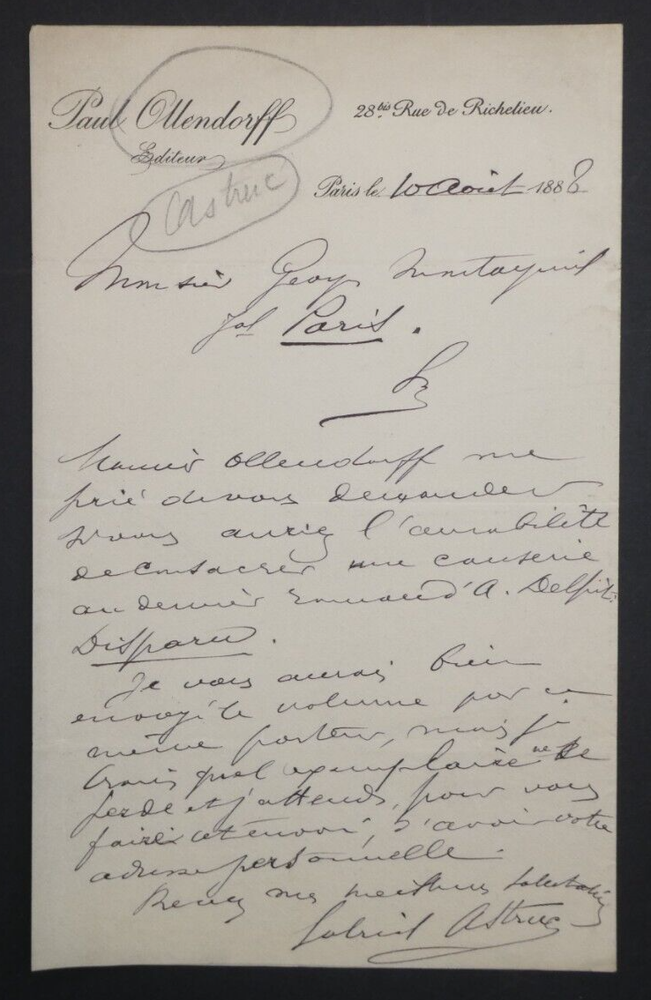 Paul Ollendorff
Editeur
28bis Rue de Richelieu.
Astruc
Paris le 10 Août 1888
Monsieur Georges Montorgueil
Jal Paris.
Monsieur Ollendorff me
prie de vous demander
si vous auriez l'amabilité
de consacrer une causerie
au dernier roman d'A. Delpit:
Disparu.
Je vous aurais bien
envoyé le volume par ce
même porteur, mais je
crains que l'exemplaire ne se
perde et j'attends, pour vous
faire cet envoi, d'avoir votre
adresse personnelle.
Recevez mes meilleures salutations
Gabriel Astruc